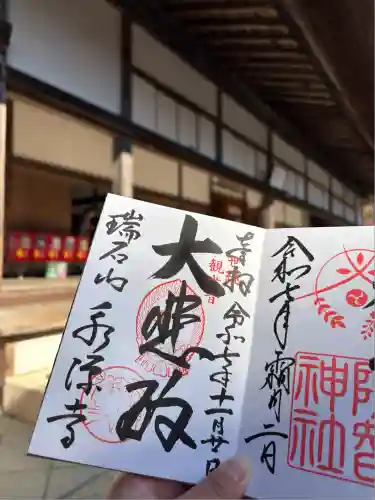 令和七年霜月廿二日
阿賀
神社
奉拝 令和七年十一月廿二日
大悲
瑞石山 永源寺